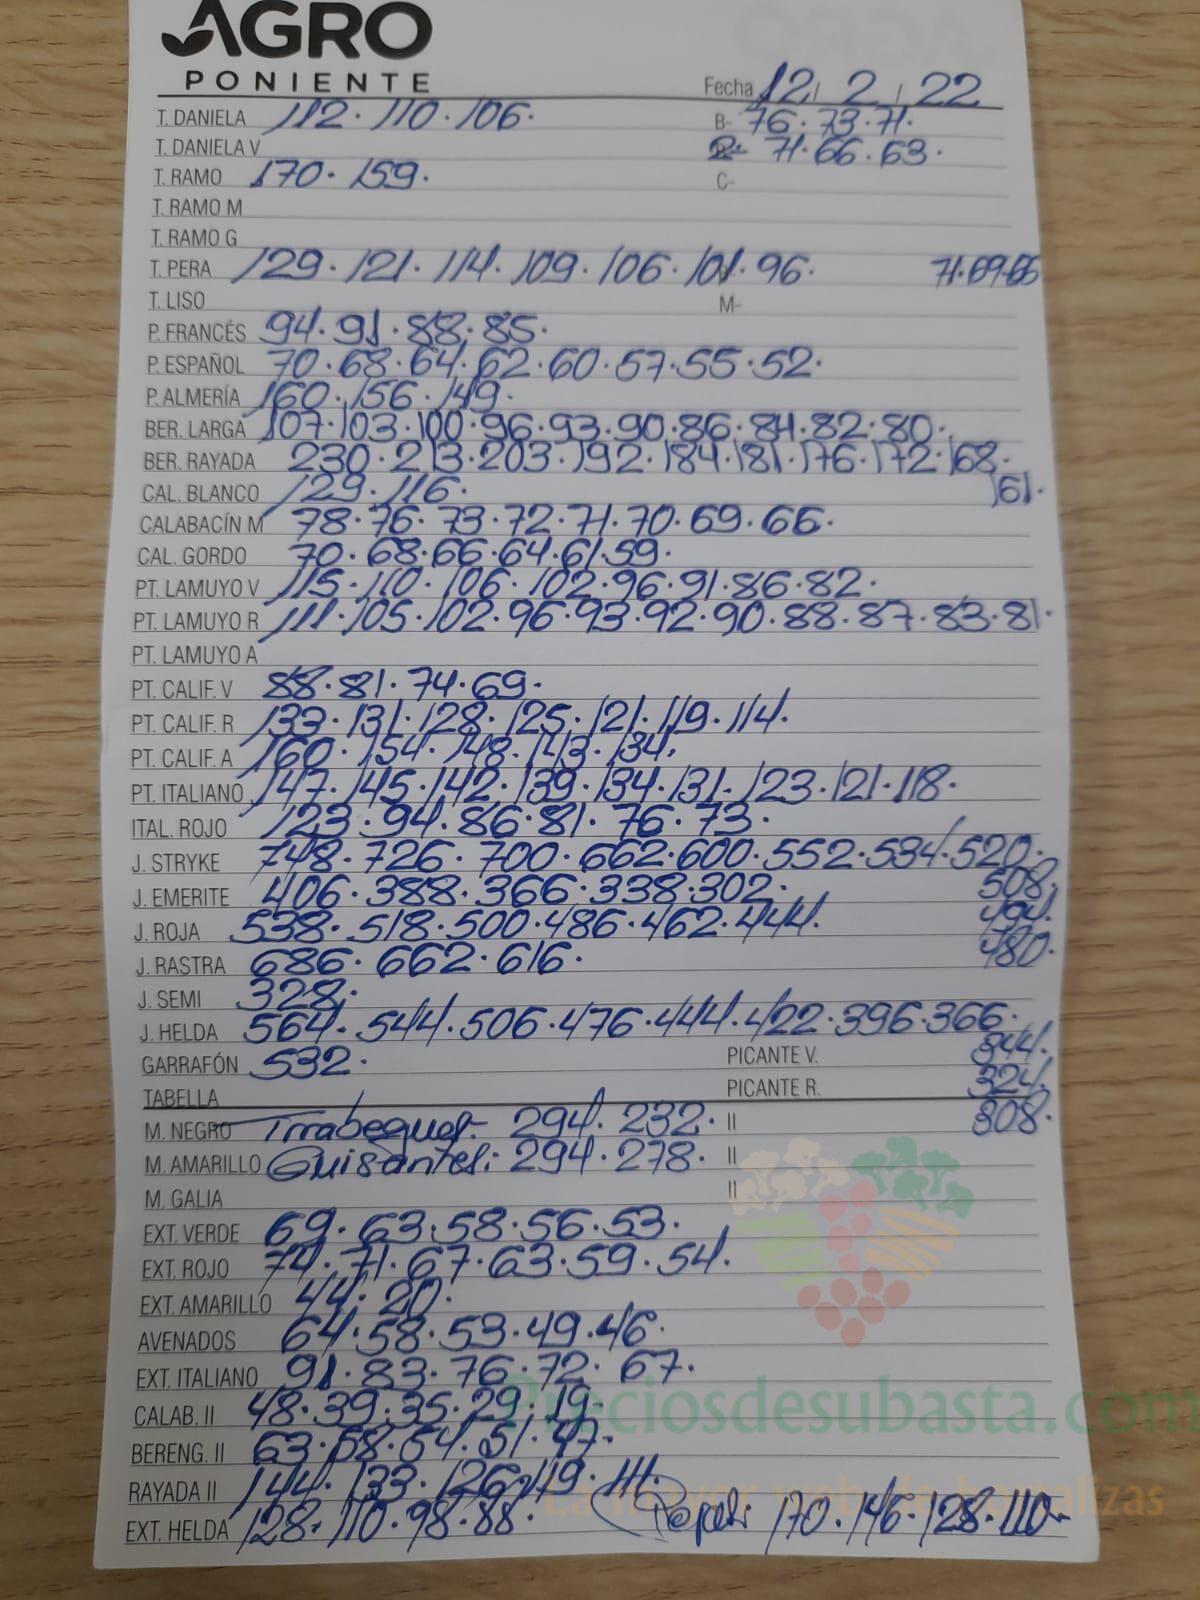 AGRO
PONIENTE
Fecha 12 / 2 / 22
T. DANIELA 112. 110. 106. B- 76. 73. 71.
T. DANIELA V 71. 66. 63.
T. RAMO 170. 159. C-
T. RAMO M
T. RAMO G
T. PERA 129. 121. 114. 109. 106. 101. 96. 71. 69. 66
T. LISO M-
P. FRANCÉS 94. 91. 88. 85.
P. ESPAÑOL 70. 68. 64. 62. 60. 57. 55. 52.
P. ALMERÍA 160. 156. 149.
BER. LARGA 107. 103. 100. 96. 93. 90. 86. 84. 82. 80.
BER. RAYADA 230. 213. 203. 192. 184. 181. 176. 172. 168.
161.
CAL. BLANCO 129. 116.
CALABACÍN M 78. 76. 73. 72. 71. 70. 69. 66.
CAL. GORDO 70. 68. 66. 64. 61. 59.
PT. LAMUYO V 115. 110. 106. 102. 96. 91. 86. 82.
PT. LAMUYO R 111. 105. 102. 96. 93. 92. 90. 88. 87. 83. 81.
PT. LAMUYO A
PT. CALIF. V 88. 81. 74. 69.
PT. CALIF. R 133. 131. 128. 125. 121. 119. 114.
PT. CALIF. A 160. 154. 148. 143. 134.
PT. ITALIANO 147. 145. 142. 139. 134. 131. 123. 121. 118.
ITAL. ROJO 123. 94. 86. 81. 76. 73.
J. STRYKE 748. 726. 700. 662. 600. 552. 534. 520.
J. EMERITE 406. 388. 366. 338. 302. 508.
J. ROJA 538. 518. 500. 486. 462. 444. 494.
J. RASTRA 686. 662. 616. 480.
J. SEMI 328.
J. HELDA 564. 544. 506. 476. 444. 422. 396. 366.
GARRAFÓN 532. PICANTE V. 344.
TABELLA PICANTE R. 324.
M. NEGRO Tirabeques. 294. 232. II 308.
M. AMARILLO Guisantes: 294. 278. II
M. GALIA II
EXT. VERDE 69. 63. 58. 56. 53.
EXT. ROJO 74. 71. 67. 63. 59. 54.
EXT. AMARILLO 44. 20.
AVENADOS 64. 58. 53. 49. 46.
EXT. ITALIANO 91. 83. 76. 72. 67.
CALAB. II 48. 39. 35. 29. 19.
Preciosdesubasta.com
BERENG. II 63. 58. 54. 51. 47.
RAYADA II 144. 133. 126. 119. 111.
EXT. HELDA 128. 110. 98. 88. 170. 146. 128. 110